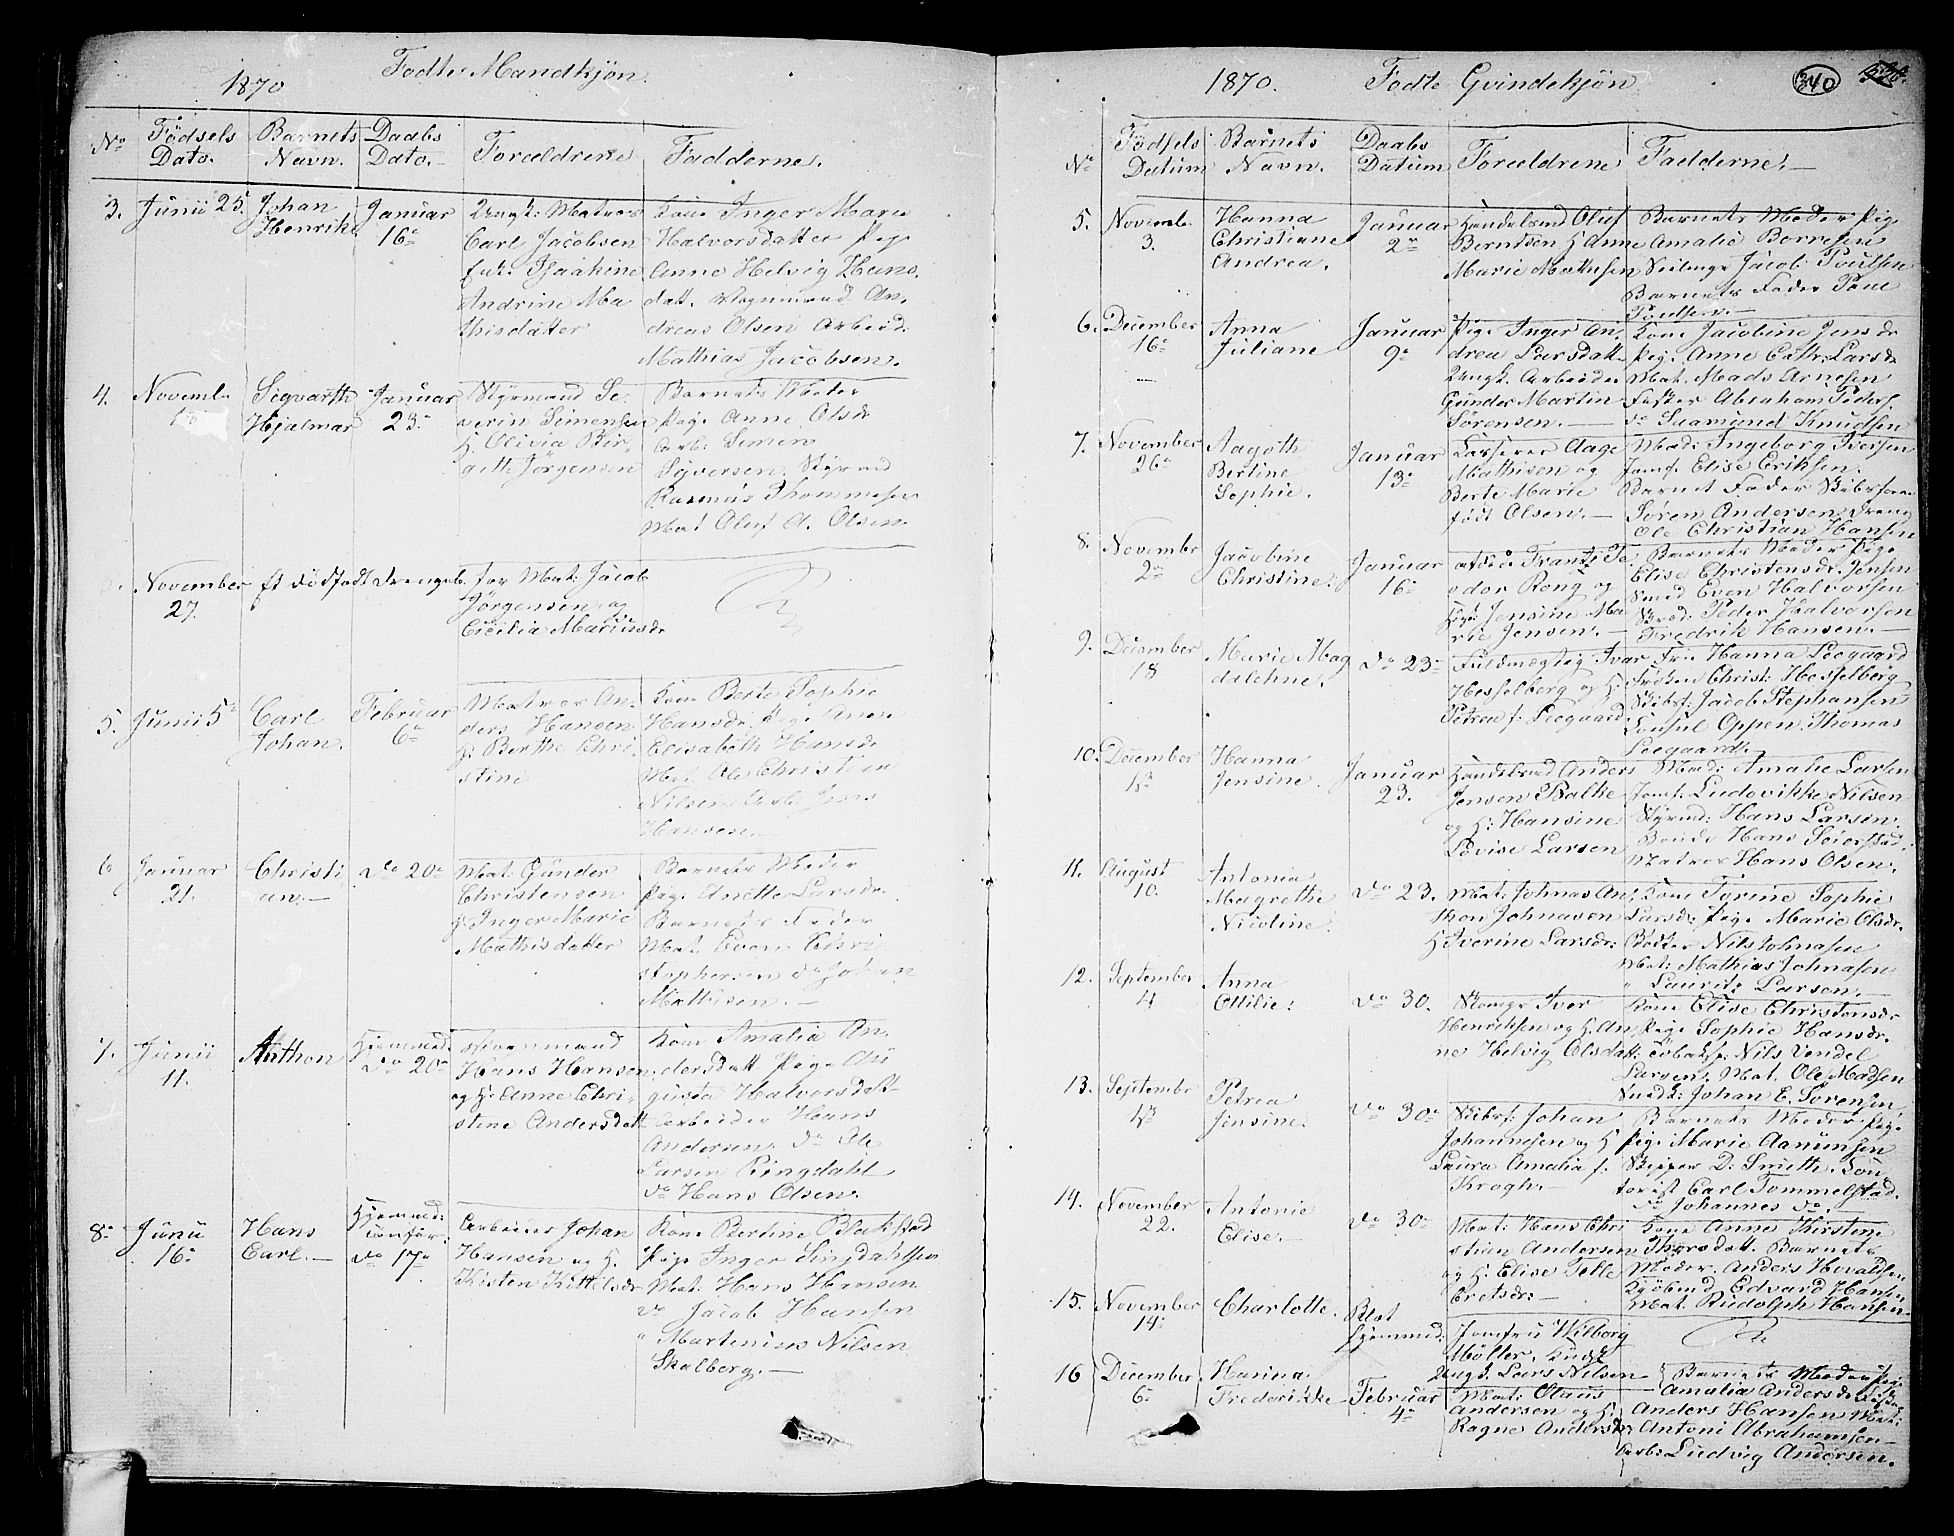 1870 Fødte Mandkjøn.
No Fødsels Dato. Barnets Navn. Daabs Dato. Forældrene Fadderne.
3. Junii 25. Johan Henrik Januar 16de
Ungk: Matros
Carl Jacobsen
Andrine Ma
thisdatter
Kone Inger Marie
Halvorsdatter Pige
Anne Helvig Hans
datt. Vognmand An
dreas Olsen Arbeid.
Mathias Jacobsen.
4. Novemb. Sigvarth Hjalmar Januar 23.
Styrmand Se
verin Simensen
H. Olivia Bir
gitte Jørgensen
Barnets Moder
Pige Anne Olsdr
Arb: Simen
Syversen, Styrmd
Rasmus Thommesen
Mat Oluf A. Olsen.
November 27. Et dødfødt Drengeb. for Mat: Jacob
Jørgensen og
Cicilia Mariusdr
5. Junii 5 Carl Johan. Februar 6te
Matros An
ders Hansen
H: Berthe Chri
stine
Kone Berte Sophie
Hansdr. Pige Anne
Elisabeth Hansdr
Mat. Ole Christian
Nilsen Arb Jens
Hansen.
6 Januar 21. Christi an. do 20de
Mat: Gunder
Christensen
H. Inger Marie
Mathisdatter
Barnets Moder
Pige Anette Larsdr.
Barnets Fader
Mat. Even Chri
stophersen do Johan
Mathisen.
7. Junii 11. Anthon Hjemmed. do 20de
Hans Hansen
og H. Anne Chri
stine Andersdatt
Kone Amalia An
dersdatt Pige Au
gusta Halvorsdatt
Arbeider Hans
Andersen, do Ole
Larsen Ringdahl
do Hans Olsen.
8de Junii 16de Hans Carl. Hjemmed: do 17de
Arbeider Johan
Hansen og H.
Kisten Kittelsdr
Kone Bertine Blakstad
Pige Inger Lingdahlsen
Mat. Hans Hansen
do Jacob Hansen
" Martenius Nilsen
Skalberg.
1870. Fødte Qvindekjøn. 340
No Fødsels Datum Barnets Navn. Daabs Datum Forældrene Fadderne.
5. Novemb. 3. Hanna Christiane Andrea. Januar 2den
Handelsmd Oluf
Berntsen H Anne
Marie Mathisen
Barnets Moder Pige
Amalie Borresen
Jacob Poulsen
Barnets Fader Poul
Poulsen.
6. December 16de Anna Juliane Januar 9de
Pige Inger An
drea Larsdatt
Ungk. Arbeider
Gunder Martin
Sørensen.
Kone Jacobine Jensdr
Pige Anne Cathr: Larsdr
Mat. Mads Arnesen
Fisker Abraham Peders.
do Suamund Knudsen
7. November 26de Aagoth Bertine Sophie. Januar 13de
Aage
Mathisen og
Berte Marie
født Olsen.
Mad: Ingeborg Iversen
Jomf. Elise Eriksen.
Barnet Fader
Søren Andersen Dreng
Ole Christian Hansen
8. Novembr 2den Jacobine Christine. Januar 16de
Frantz Te
odor Rong og
Jensine Ma
rie Jensen.
Barnets Moder Pige
Elise Christensdr. Jensen
Smed Even Halvorsen
Skræd: Peder Halvorsen
Fredrik Hansen.
9. December 18 Marie Mag dalehne. do 23de
Fuldmægtig Ivar
Hesselberg og H.
Petrea f. Leegaard
Fru Hanna Leegaard
Frøken Christ: Hesselberg
Skibsf: Jacob Stephansen
Consul Oppen. Thomas
Leegaard.
10. December 13 Hanna Jensine. Januar 23.
Handelsmd Anders
Jensen Balke
og H: Hansine
Lovise Larsen
Mad: Amalie Larsen
Jomf. Ludovikke Nilsen
Styrmd: Hans Larsen.
Bonde Hans Seierstad.
Matros Hans Olsen.
11. August 10. Antonia Magrethe Nicoline. do 23.
Mat: Johnas An
thon Johnasen
H Iverine Larsdr:
Kone Torine Sophie
Larsdr Pige Marie Olsdr
Nils Johnasen
Mat: Mathias Johnasen
" Lauritz Larsen.
12. September 4 Anna Ottilie: do 30.
Iver
Henriksen og H. An
ne Helvig Olsdatt:
Kone Elise Christensdr
Pige Sophie Hansdr.
Nils Vendel
Larsen, Mat. Ole Madsen
Johan E. Sørensen,
13. Septembr Petrea Jensine. do 30de
Skibsf. Johan
Johannesen og H
Laura Amalia f:
Krogh.
Barnets Moder Pige
Pige Marie Aanunsen
Skipper D: Smith. Con
torist Carl Tommelstad.
do Johannes do.
14. November 22. Antonie Elise. do 30de
Mat: Hans Chri
stian Andersen
og H. Elise Telle
Eretsdr:
Kone Anne Kirstine
Thorsdatt. Barnets
Moder. Anders Hovaldsen
Kjøbmd Edvard Hansen
Mat. Rudolph Hansen
15. November 14de Charlotte. Blot hjemmed:
Jomfru Wilborg
Møller.
Ungk. Lars Nilsen
16 December 6te Hanna Frederikke Februar 4de
Mat: Olaus
Andersen og H.
Ragne Andersdr
Barnets Moder Pige
Amalia Andersdr
Anders Hansen Mat:
Antoni Abrahamsen
Arb: Ludvig Andersen.